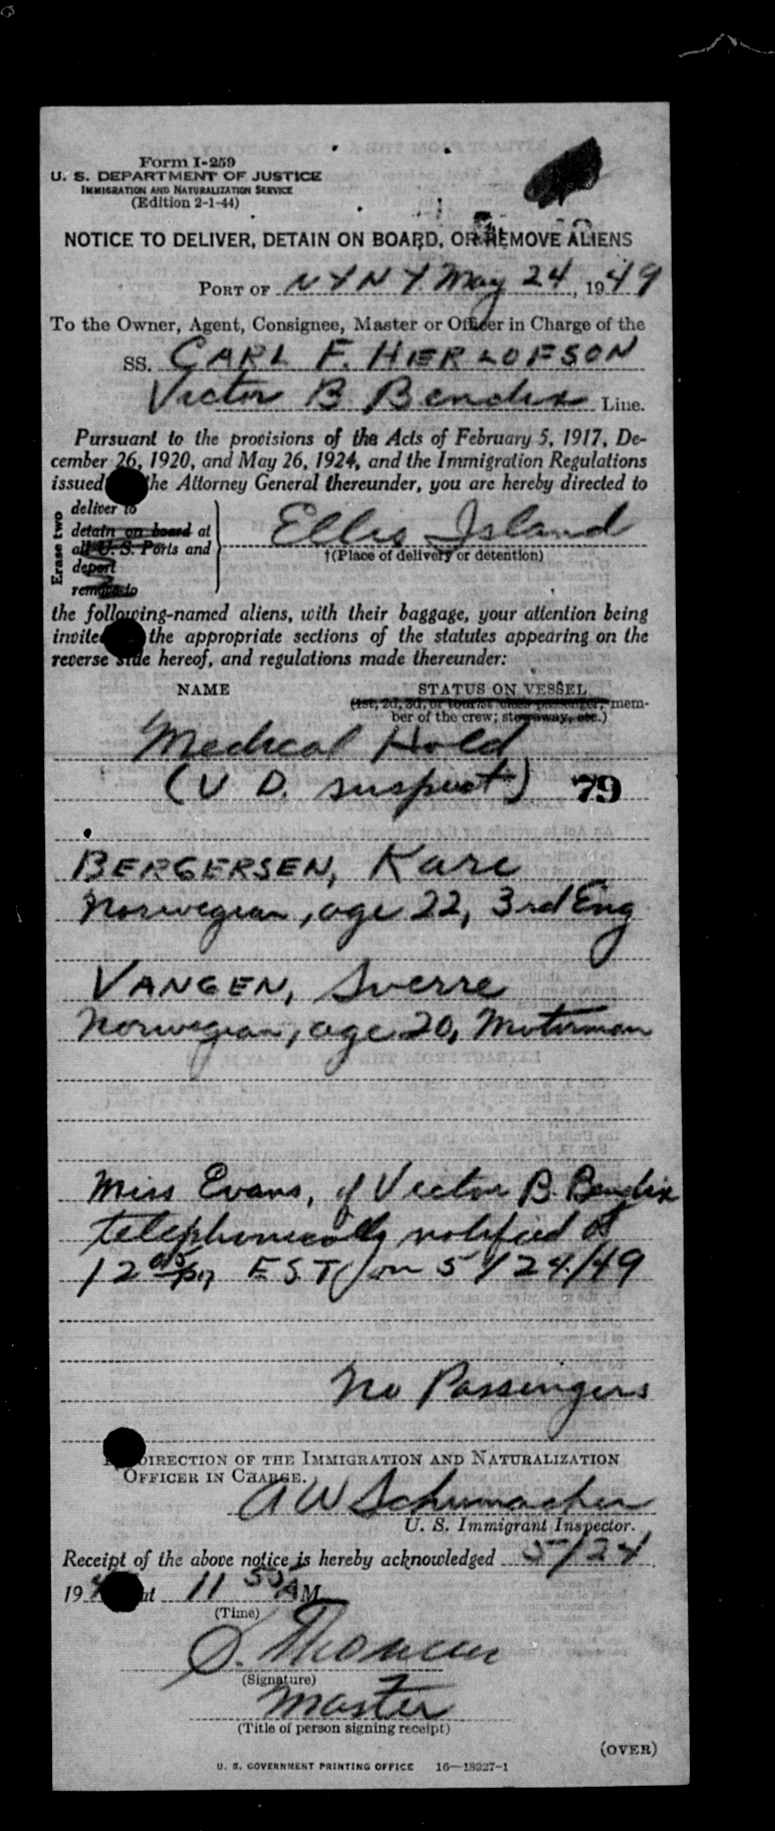 Form I-259
U. S. DEPARTMENT OF JUSTICE
IMMIGRATION AND NATURALIZATION SERVICE
(Edition 2-1-44)
NOTICE TO DELIVER, DETAIN ON BOARD, OR REMOVE ALIENS
PORT OF NYNY May 24, 1949
To the Owner, Agent, Consignee, Master or Officer in Charge of the
SS. CARL F. HIERLOFSON
Victor B Bendix Line.
Pursuant to the provisions of the Acts of February 5, 1917, De-
cember 26, 1920, and May 26, 1924, and the Immigration Regulations
issued the Attorney General thereunder, you are hereby directed to
Erase two
deliver to
detain on board at
all U. S. Ports and
deport
remove to
Ellis Island
†(Place of delivery or detention)
the following-named aliens, with their baggage, your attention being
invited the appropriate sections of the statutes appearing on the
reverse side hereof, and regulations made thereunder:
NAME STATUS ON VESSEL
(1st, 2d, 3d, or tourist class passenger; mem-
ber of the crew; stowaway, etc.)
Medical Hold
(V D. suspect) 79
BERGERSEN, Kare
Norwegian, age 22, 3rd Eng
VANGEN, Sverre
Norwegian, age 20, Motorman
Miss Evans, of Victor B. Bendix
telephonically notified at
12 05 pm EST on 5/24/49
No Passengers
DIRECTION OF THE IMMIGRATION AND NATURALIZATION
OFFICER IN CHARGE.
A W Schumacher
U. S. Immigrant Inspector.
Receipt of the above notice is hereby acknowledged 5/24
194 at 11 50 A M
(Time)
S.
(Signature)
Master
(Title of person signing receipt)
(OVER)
U. S. GOVERNMENT PRINTING OFFICE 16—18227-1